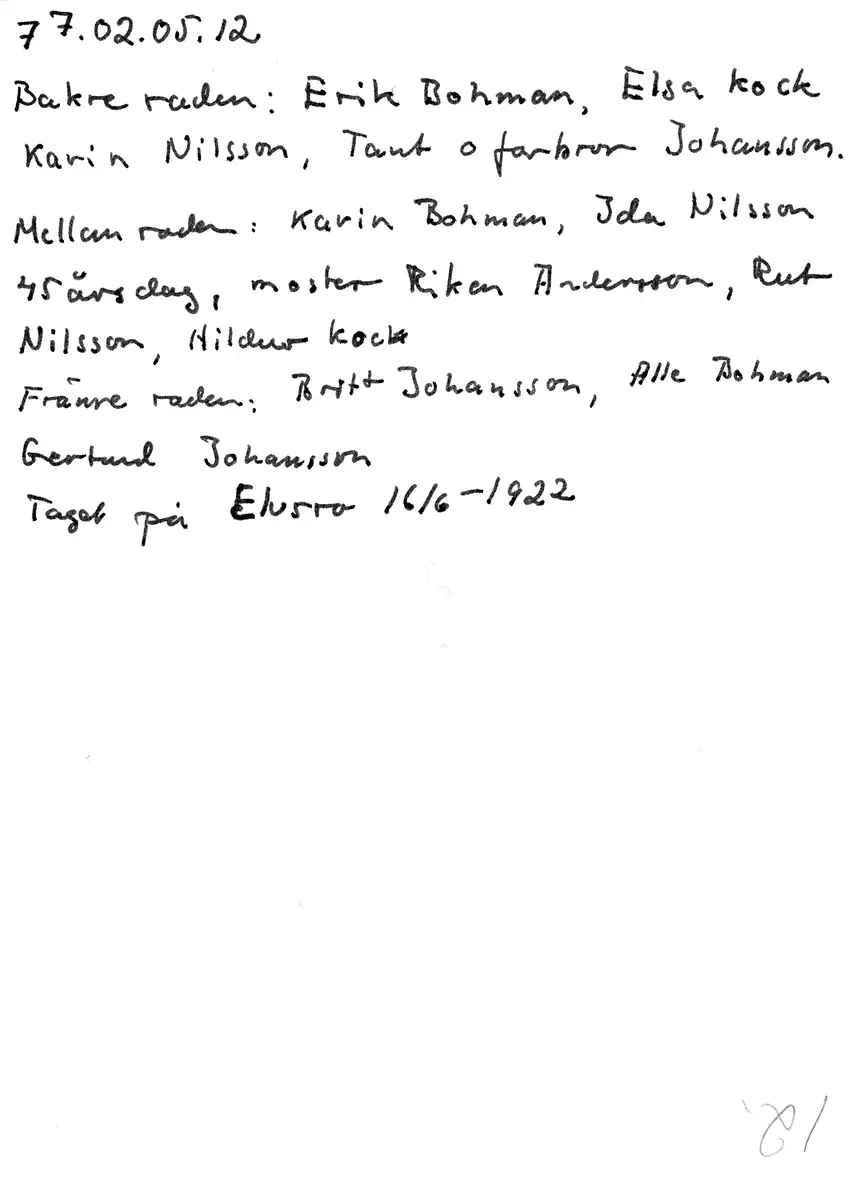 77.02.05.12
Bakre raden: Erik Bohman, Elsa Kock
Karin Nilsson, Tant o farbror Johansson.
Mellan raden: Karin Bohman, Ida Nilsson
45 årsdag, moster Riken Andersson, Rut
Nilsson, Hildur Kock
Främre raden: Britt Johansson, Alle Bohman
Gertrud Johansson
Taget på 16/6-1922